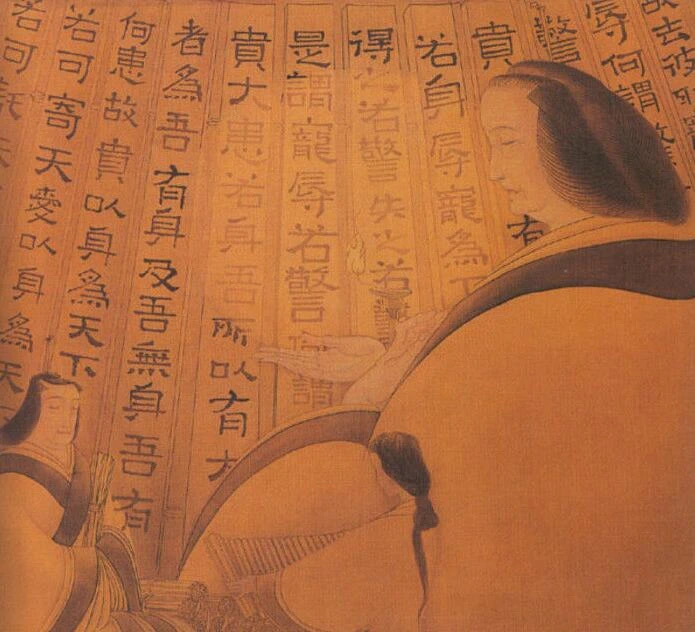 故去彼
辱何謂
警
貴
若身辱寵為下
得之若警失之若警
是謂寵辱若警何謂
貴大患若身吾所以有大
者為吾有身及吾無身吾有
何患故貴以身為天下
若可寄天愛以身為天
若可託天